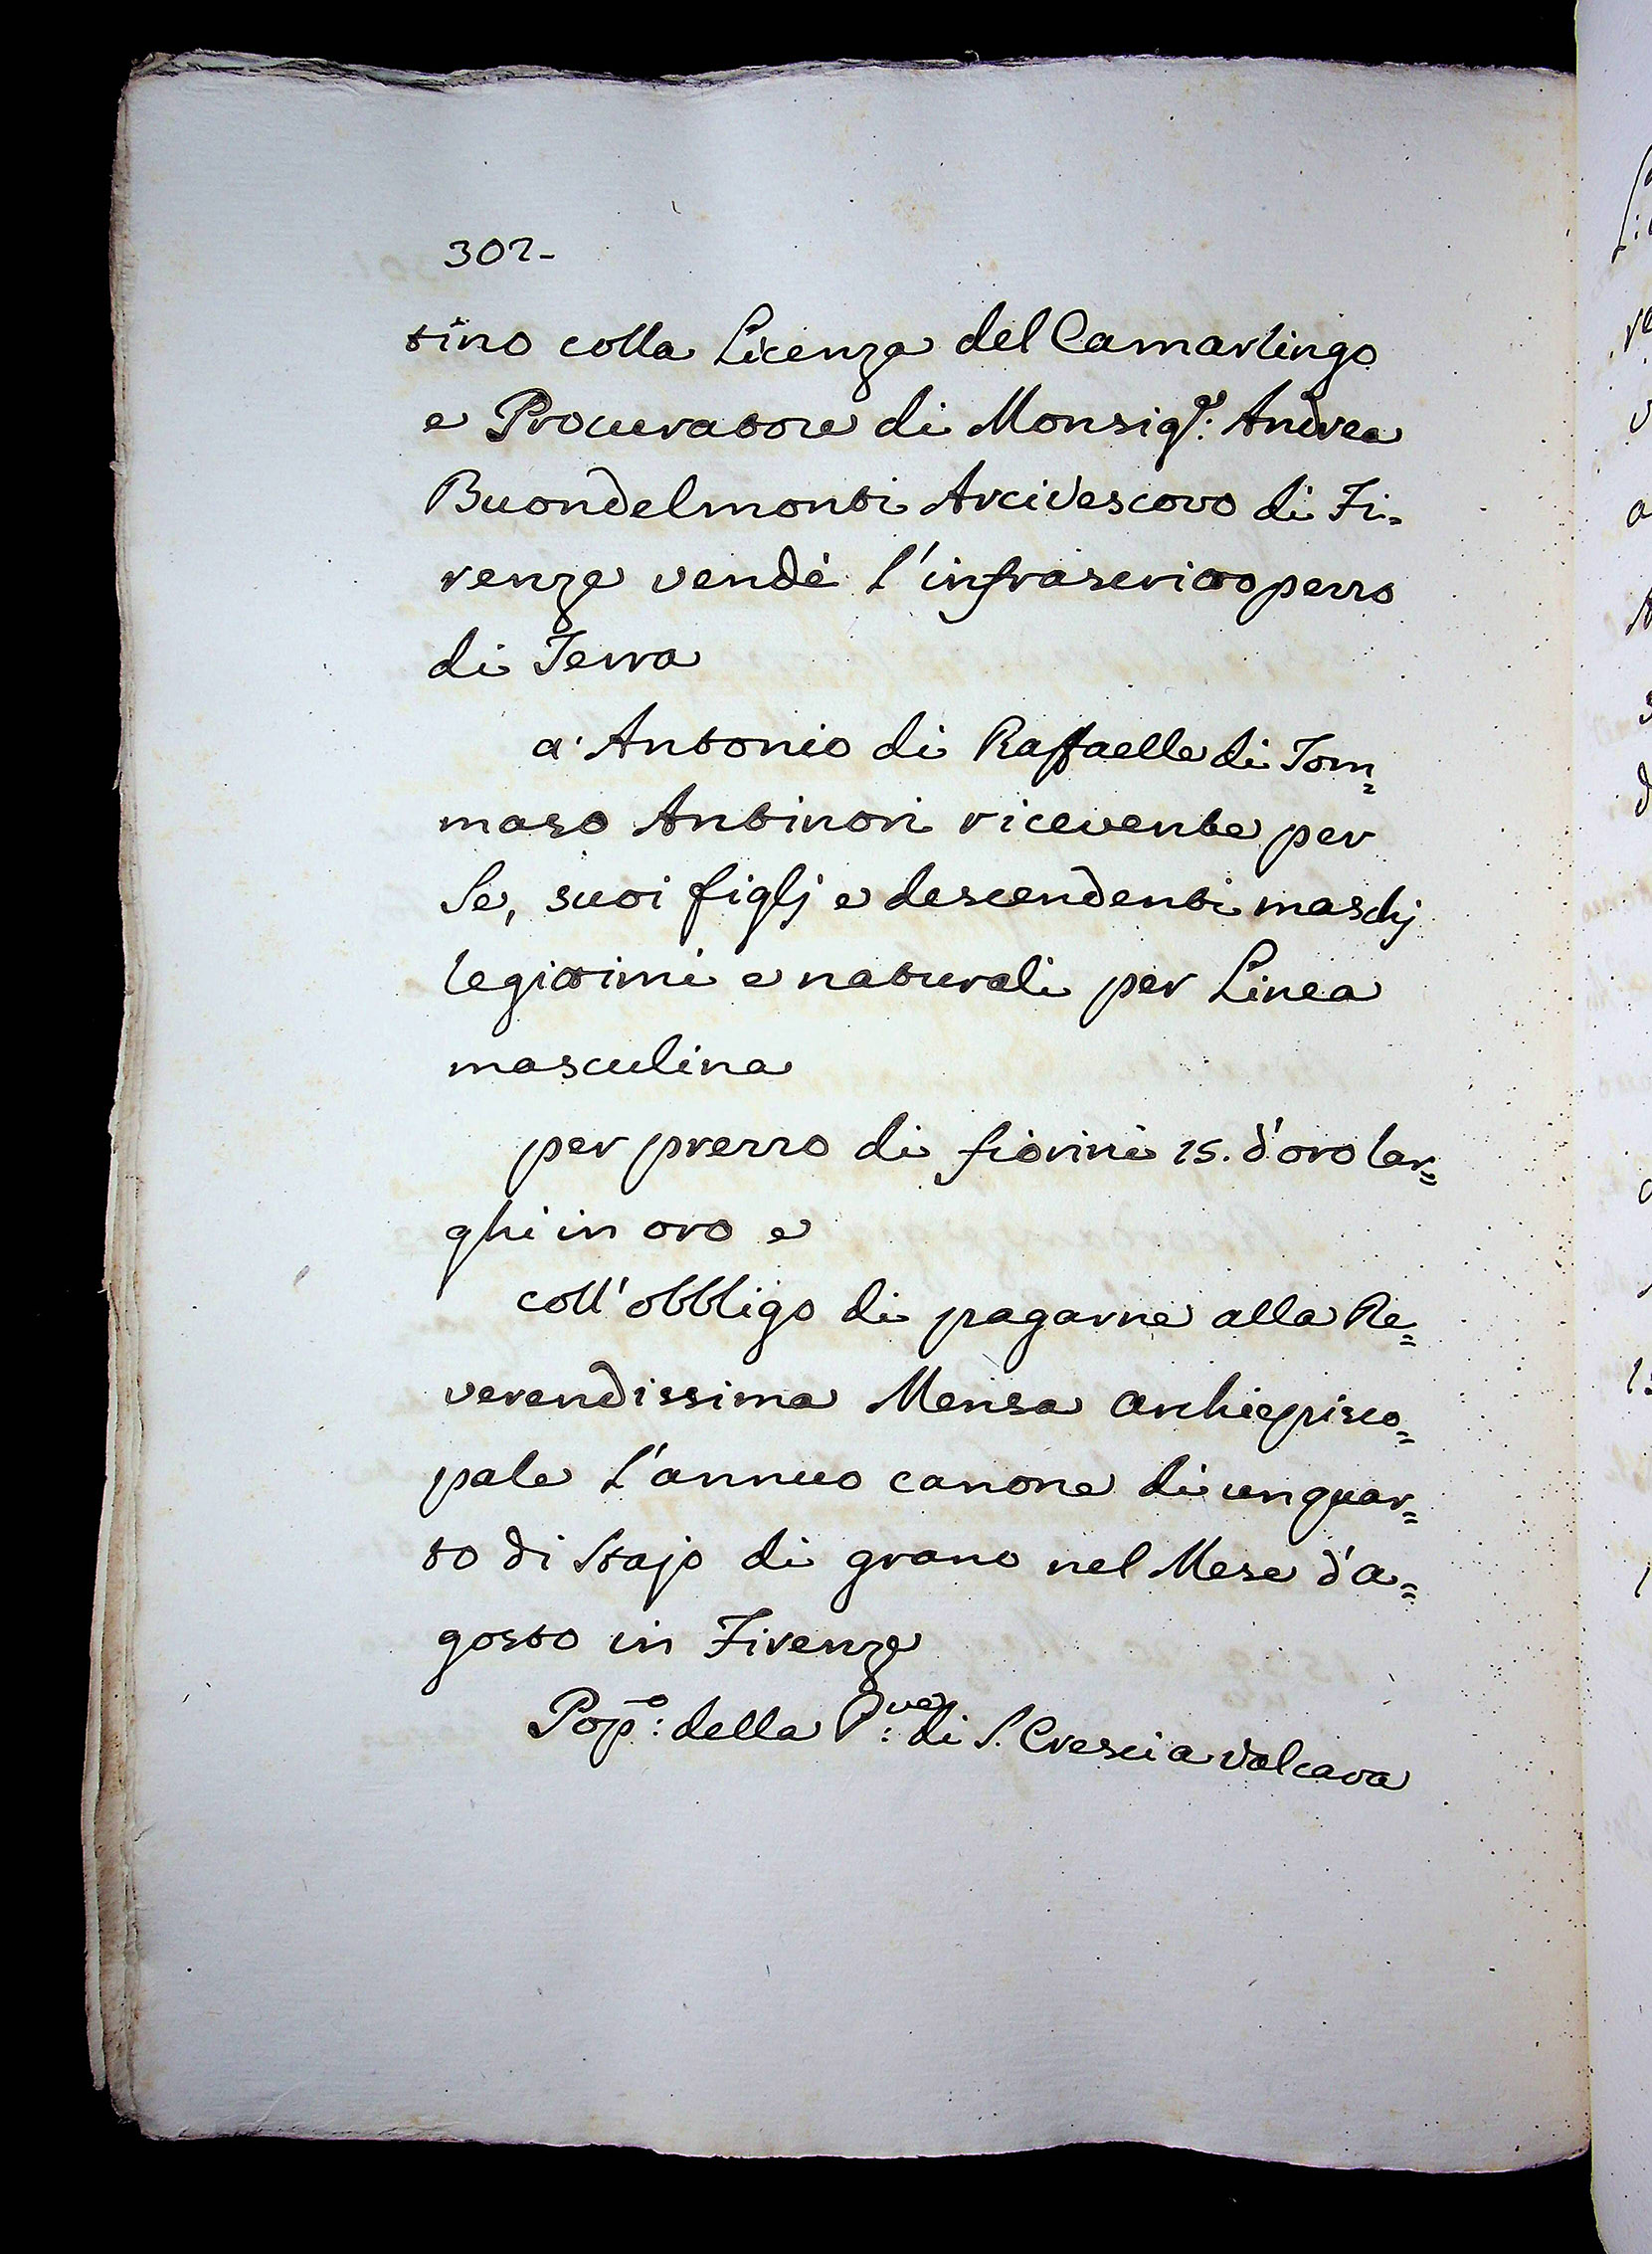 302-
tino colla Licenza del Camarlingo
e Procuratore di Monsig.r: Andrea
Buondelmonti Arcivescovo di Fi=
renze vendè l'infrascritto pezzo
di Terra
a' Antonio di Raffaelle di Tom=
maso Antinori ricevente per
Se, suoi figlj e descendenti maschj
legittimi e naturali per Linea
masculina
per prezzo di fiorini 15. d'oro lar=
ghi in oro e
coll'obbligo di pagarne alla Re=
verendissima Mensa Archiepisco=
pale l'annuo canone di un quar=
to di Stajo di grano nel Mese d'a=
gosto in Firenze
Pop.o: della P.ve: di S. Cresci a Valcava